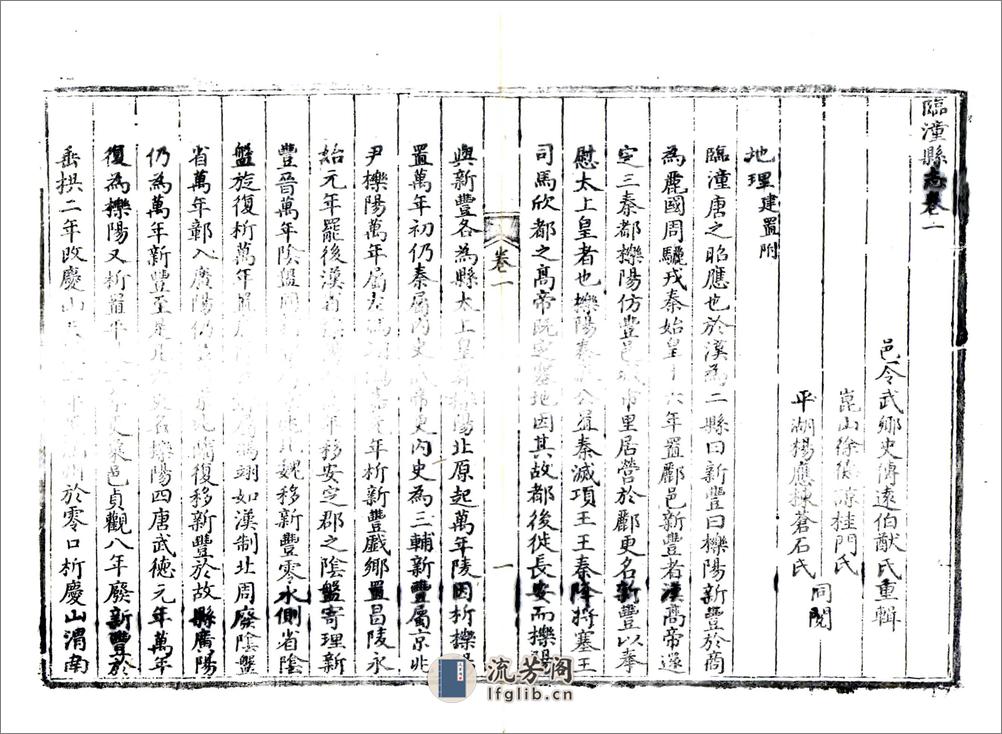 臨潼縣志卷一
邑令武鄉史傳遠伯猷氏重輯
崑山徐 桂門氏
平湖楊應 蒼石氏
同閱
地理建置附
臨潼唐之昭應也於漢為二縣曰新豐曰櫟陽新豐於商
為麗國周驪戎秦始皇十六年置酈邑新豐者漢高帝還
定三秦都櫟陽仿豐邑城市里居營於酈更名新豐以奉
慰太上皇者也櫟陽秦 公益秦滅項王王秦降將塞王
司馬欣都之高帝既定 地因其故都後徙長安而櫟陽
卷一
一
與新豐各為縣太上皇 櫟陽北原起萬年陵因析櫟陽
置萬年初仍秦屬內史 帝更內史為三輔新豐屬京兆
尹櫟陽萬年屬左馮 年析新豐戲鄉置昌陵永
始元年罷後漢 移安定郡之陰盤寄理新
豐晉萬年陰盤 北魏移新豐零水側省陰
盤旋復析萬年 馮翊如漢制北周廢陰盤
省萬年鄣入廣陽仍 隋復移新豐於故縣廣陽
仍為萬年新豐至是 櫟陽四唐武德元年萬年
復為櫟陽又析置平 家邑貞觀八年廢新豐於
垂拱二年改慶山 於零口析慶山渭南
流芳阁
lfglib.cn